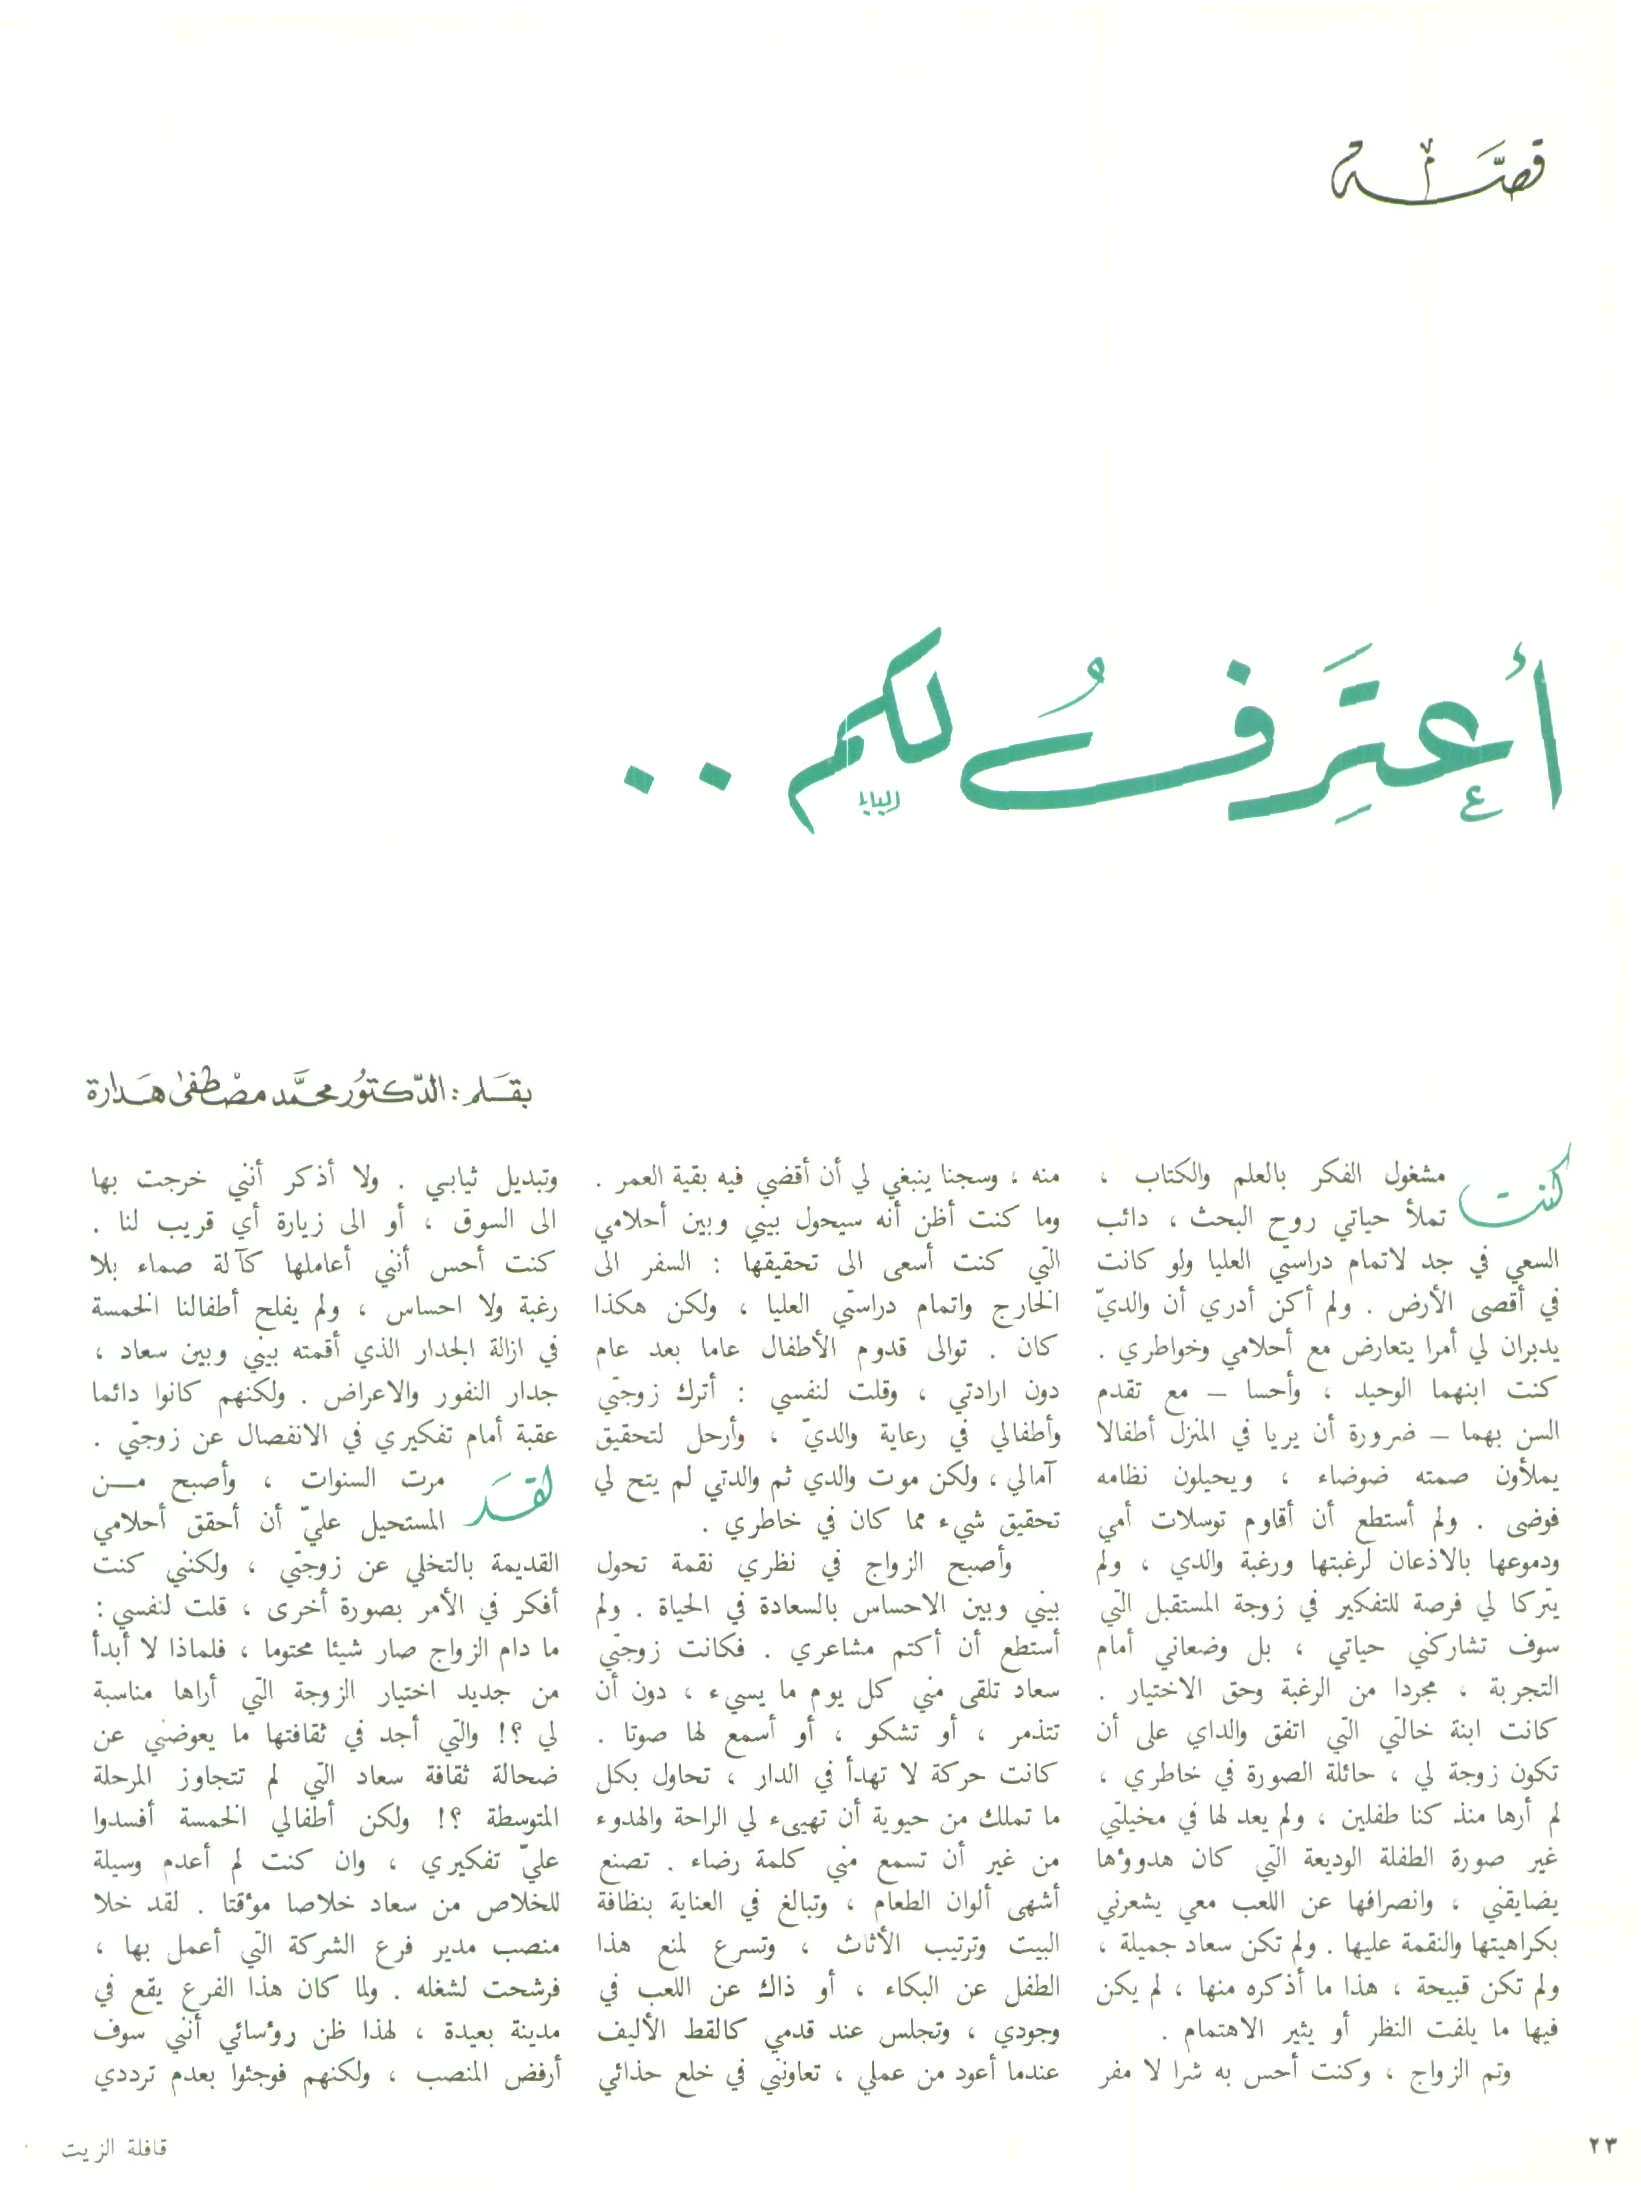 قصَّة
أعترفُ لكم ..
بقَلم : الدّكتوُر محمَّد مصْطفىٰ هَدارة
كنت مشغول الفكر بالعلم والكتاب ،
تملأ حياتي روح البحث ، دائب
السعي في جد لاتمام دراستي العليا ولو كانت
في أقصى الأرض . ولم أكن أدري أن والديّ
يدبران لي أمرا يتعارض مع أحلامي وخواطري .
كنت ابنهما الوحيد ، وأحسا – مع تقدم
السن بهما – ضرورة أن يريا في المنزل أطفالا
يملأون صمته ضوضاء ، ويحيلون نظامه
فوضى . ولم أستطع أن أقاوم توسلات أمي
ودموعها بالاذعان لرغبتها ورغبة والدي ، ولم
يتركا لي فرصة للتفكير في زوجة المستقبل التي
سوف تشاركني حياتي ، بل وضعاني أمام
التجربة ، مجردا من الرغبة وحق الاختيار .
كانت ابنة خالتي التي اتفق والداي على أن
تكون زوجة لي ، حائلة الصورة في خاطري ،
لم أرها منذ كنا طفلين ، ولم يعد لها في مخيلتي
غير صورة الطفلة الوديعة التي كان هدوؤها
يضايقني ، وانصرافها عن اللعب معي يشعرني
بكراهيتها والنقمة عليها . ولم تكن سعاد جميلة ،
ولم تكن قبيحة ، هذا ما أذكره منها ، لم يكن
فيها ما يلفت النظر أو يثير الاهتمام .
وتم الزواج ، وكنت أحس به شرا لا مفر
منه ، وسجنا ينبغي لي أن أقضي فيه بقية العمر .
وما كنت أظن أنه سيحول بيني وبين أحلامي
التي كنت أسعى الى تحقيقها : السفر الى
الخارج واتمام دراستي العليا ، ولكن هكذا
كان . توالى قدوم الأطفال عاما بعد عام
دون ارادتي ، وقلت لنفسي : أترك زوجتي
وأطفالي في رعاية والديّ ، وأرحل لتحقيق
آمالي ، ولكن موت والدي ثم والدتي لم يتح لي
تحقيق شيء مما كان في خاطري .
وأصبح الزواج في نظري نقمة تحول
بيني وبين الاحساس بالسعادة في الحياة . ولم
أستطع أن أكتم مشاعري . فكانت زوجتي
سعاد تلقى مني كل يوم ما يسيء ، دون أن
تتذمر ، أو تشكو ، أو أسمع لها صوتا .
كانت حركة لا تهدأ في الدار ، تحاول بكل
ما تملك من حيوية أن تهيىء لي الراحة والهدوء
من غير أن تسمع مني كلمة رضاء . تصنع
أشهى ألوان الطعام ، وتبالغ في العناية بنظافة
البيت وترتيب الأثاث ، وتسرع لمنع هذا
الطفل عن البكاء ، أو ذاك عن اللعب في
وجودي ، وتجلس عند قدمي كالقط الأليف
عندما أعود من عملي ، تعاونني في خلع حذائي
وتبديل ثيابي . ولا أذكر أنني خرجت بها
الى السوق ، أو الى زيارة أي قريب لنا .
كنت أحس أنني أعاملها كآلة صماء بلا
رغبة ولا احساس ، ولم يفلح أطفالنا الخمسة
في ازالة الجدار الذي أقمته بيني وبين سعاد ،
جدار النفور والاعراض . ولكنهم كانوا دائما
عقبة أمام تفكيري في الانفصال عن زوجتي .
لقَد مرت السنوات ، وأصبح مــن
المستحيل عليّ أن أحقق أحلامي
القديمة بالتخلي عن زوجتي ، ولكنني كنت
أفكر في الأمر بصورة أخرى ، قلت لنفسي :
ما دام الزواج صار شيئا محتوما ، فلماذا لا أبدأ
من جديد اختيار الزوجة التي أراها مناسبة
لي ؟! والتي أجد في ثقافتها ما يعوضني عن
ضحالة ثقافة سعاد التي لم تتجاوز المرحلة
المتوسطة ؟! ولكن أطفالي الخمسة أفسدوا
عليّ تفكيري ، وان كنت لم أعدم وسيلة
للخلاص من سعاد خلاصا مؤقتا . لقد خلا
منصب مدير فرع الشركة التي أعمل بها ،
فرشحت لشغله . ولما كان هذا الفرع يقع في
مدينة بعيدة ، لهذا ظن رؤسائي أنني سوف
أرفض المنصب ، ولكنهم فوجئوا بعدم ترددي
٢٣
قافلة الزيت